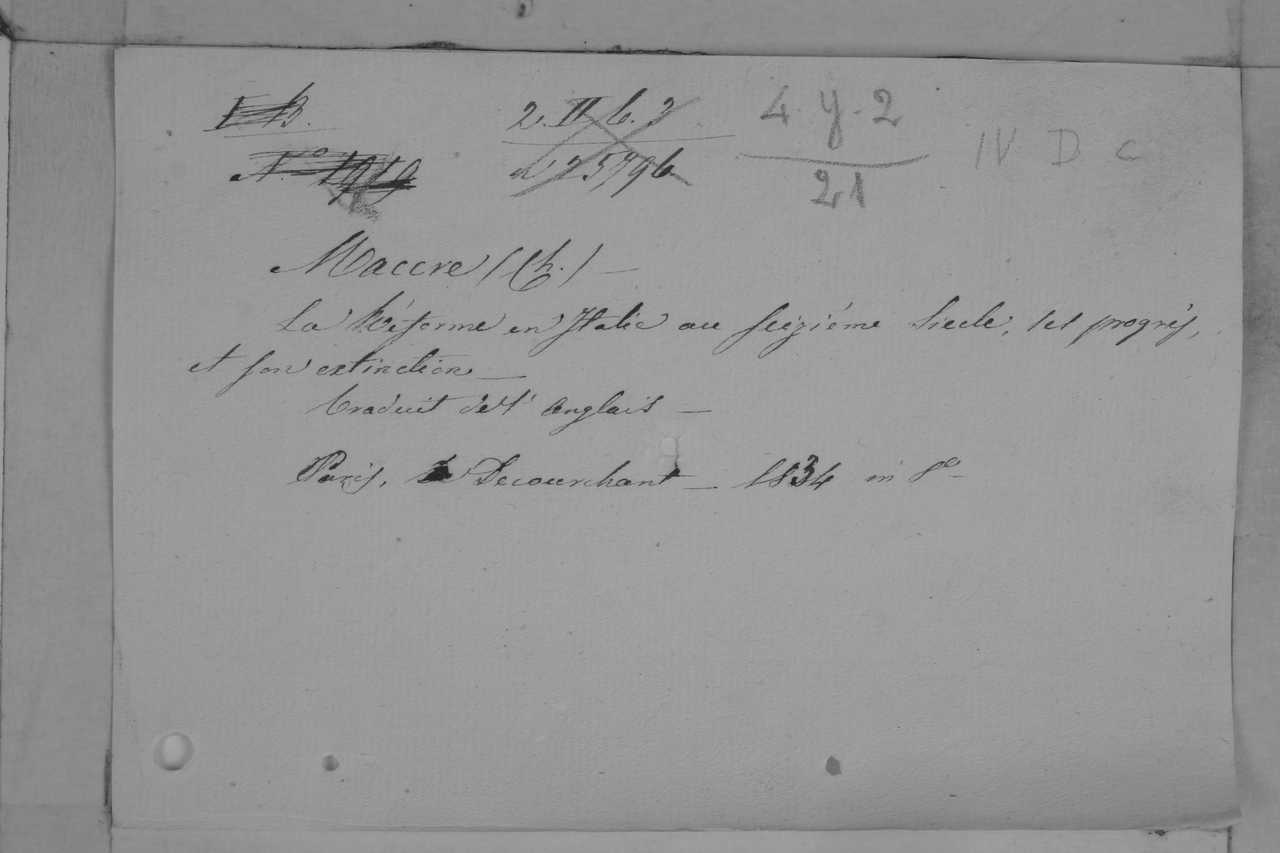 I B. 2. II 6. 3 4 y. 2 IV D c
N.º 1919 n 25796 21
Maccre (Ch.) —
La Réforme en Italie au Seizième Siecle, ses progrès,
et son extinction —
traduit de l' anglais —
Paris, Decourchant — 1834 in 8º —